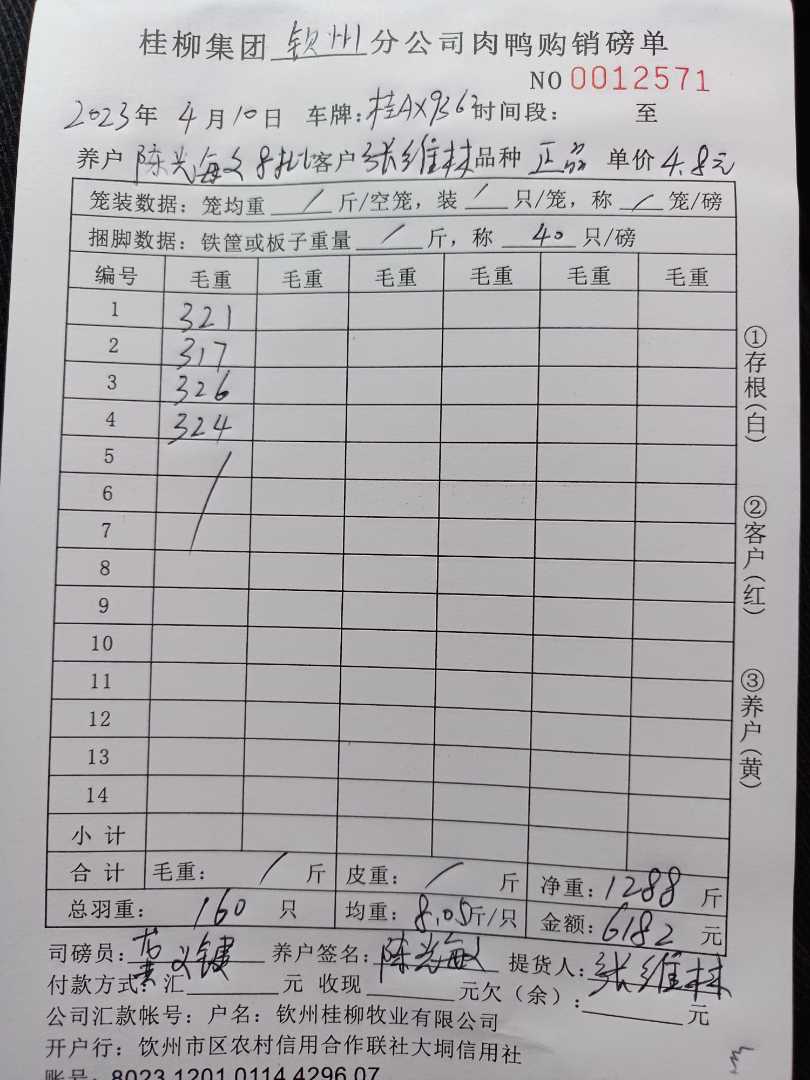 桂柳集团 钦州 分公司肉鸭购销磅单
NO 0012571
2023年 4月10日 车牌:桂AX9363时间段: 至
养户 陈光敏 8批 客户 张维林 品种 正品 单价 4.8元
笼装数据:笼均重 / 斤/空笼,装 / 只/笼,称 / 笼/磅
捆脚数据:铁筐或板子重量 / 斤,称 40 只/磅
编号 毛重 毛重 毛重 毛重 毛重 毛重
1 321
2 317
3 326
4 324
5 /
6
7
8
9
10
11
12
13
14
小计
合计 毛重: / 斤 皮重: / 斤 净重:1288 斤
总羽重: 160 只 均重:8.05斤/只 金额:6182 元
司磅员: 键 养户签名: 陈光敏 提货人:张维林
付款方式:汇 元 收现 元欠(余): 元
公司汇款帐号:户名:钦州桂柳牧业有限公司
开户行:钦州市区农村信用合作联社大垌信用社
账号:8023 1201 0114 4296 07
①存根(白)
②客户(红)
③养户(黄)